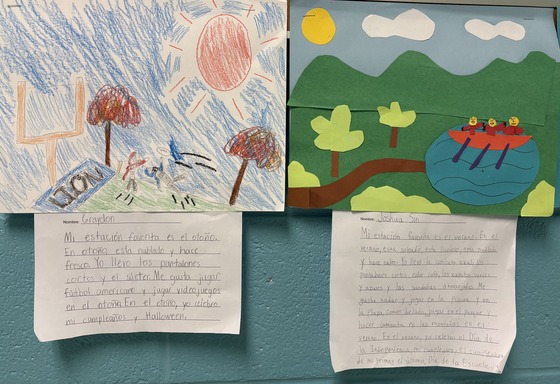 LION
Nombre: Graydon
Mi estación favorita es el otoño.
En otoño está nublado y hace
fresca. Yo llevo los pantalones
cortos y el suéter. Me gusta jugar
fútbol americano y jugar videojuegos
en el otoño. En el otoño, yo celebro
mi cumpleaños y Halloween.
Nombre: Joshua Sin
Mi estación favorita es el verano. En el
y hace calor. Yo llevo la camiseta
gusta nadar y jugar en la piscina y en
la playa, comer helado, jugar en el parque y
hacer caminata en las montañas en el
verano. En el verano, yo celebro el Día de
la Independencia, mi cumpleaños, el cumpleaños
de mi prima, el último Día de la Escuela